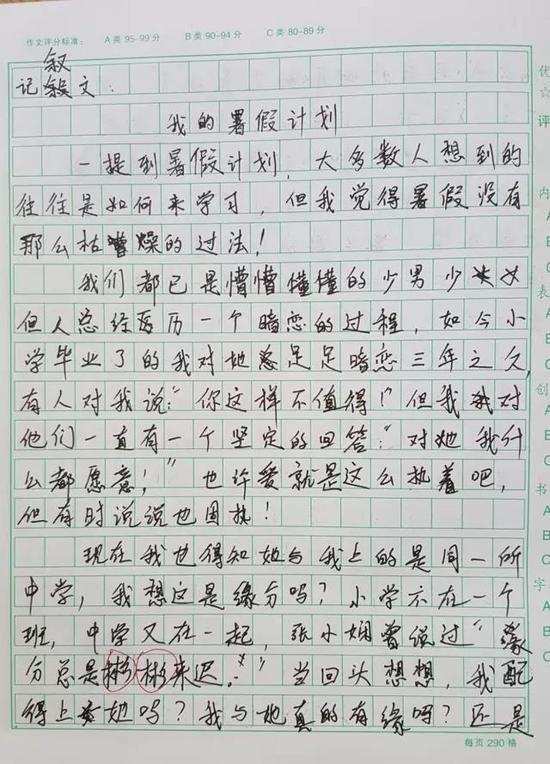 作文评分标准: A类95-99分 B类90-94分 C类80-89分
叙
记文:
我的暑假计划
一提到暑假计划,大多数人想到的
往往是如何来学习,但我觉得暑假没有
那么枯燥的过法!
我们都已是懵懵懂懂的少男少女
但人总经历一个暗恋的过程,如今小
学毕业了的我对她足足暗恋三年之久,
有人对我说:“你这样不值得!”但我对
他们一直有一个坚定的回答:“对她我什
么都愿意!”也许爱就是这么执着吧,
但有时说说也固执!
现在我也得知她与我上的是同一所
中学,我想这是缘分吗?小学不在一个
班,中学又在一起,张小娴曾说过“缘
分总是彬彬来迟.”当回头想想,我配
得上她吗?我与她真的有缘吗?还是
每页290格
优
☆
评
A
内
A
B
C
表
A
B
C
创
A
B
C
书
A
B
C
字
A
B
C